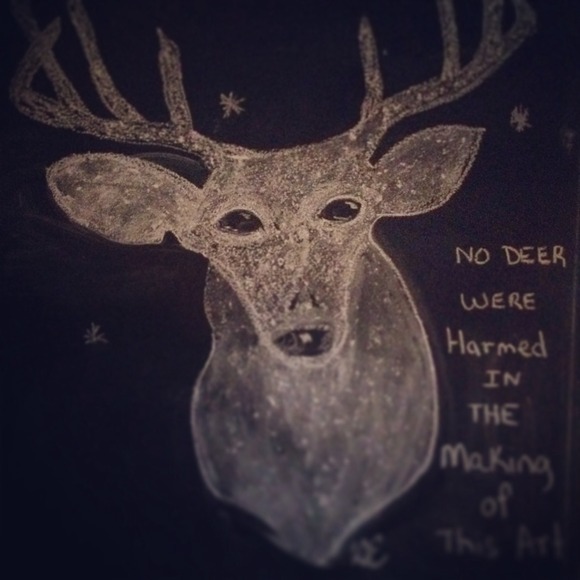 NO DEER
WERE
Harmed
IN
THE
Making
of
This Art